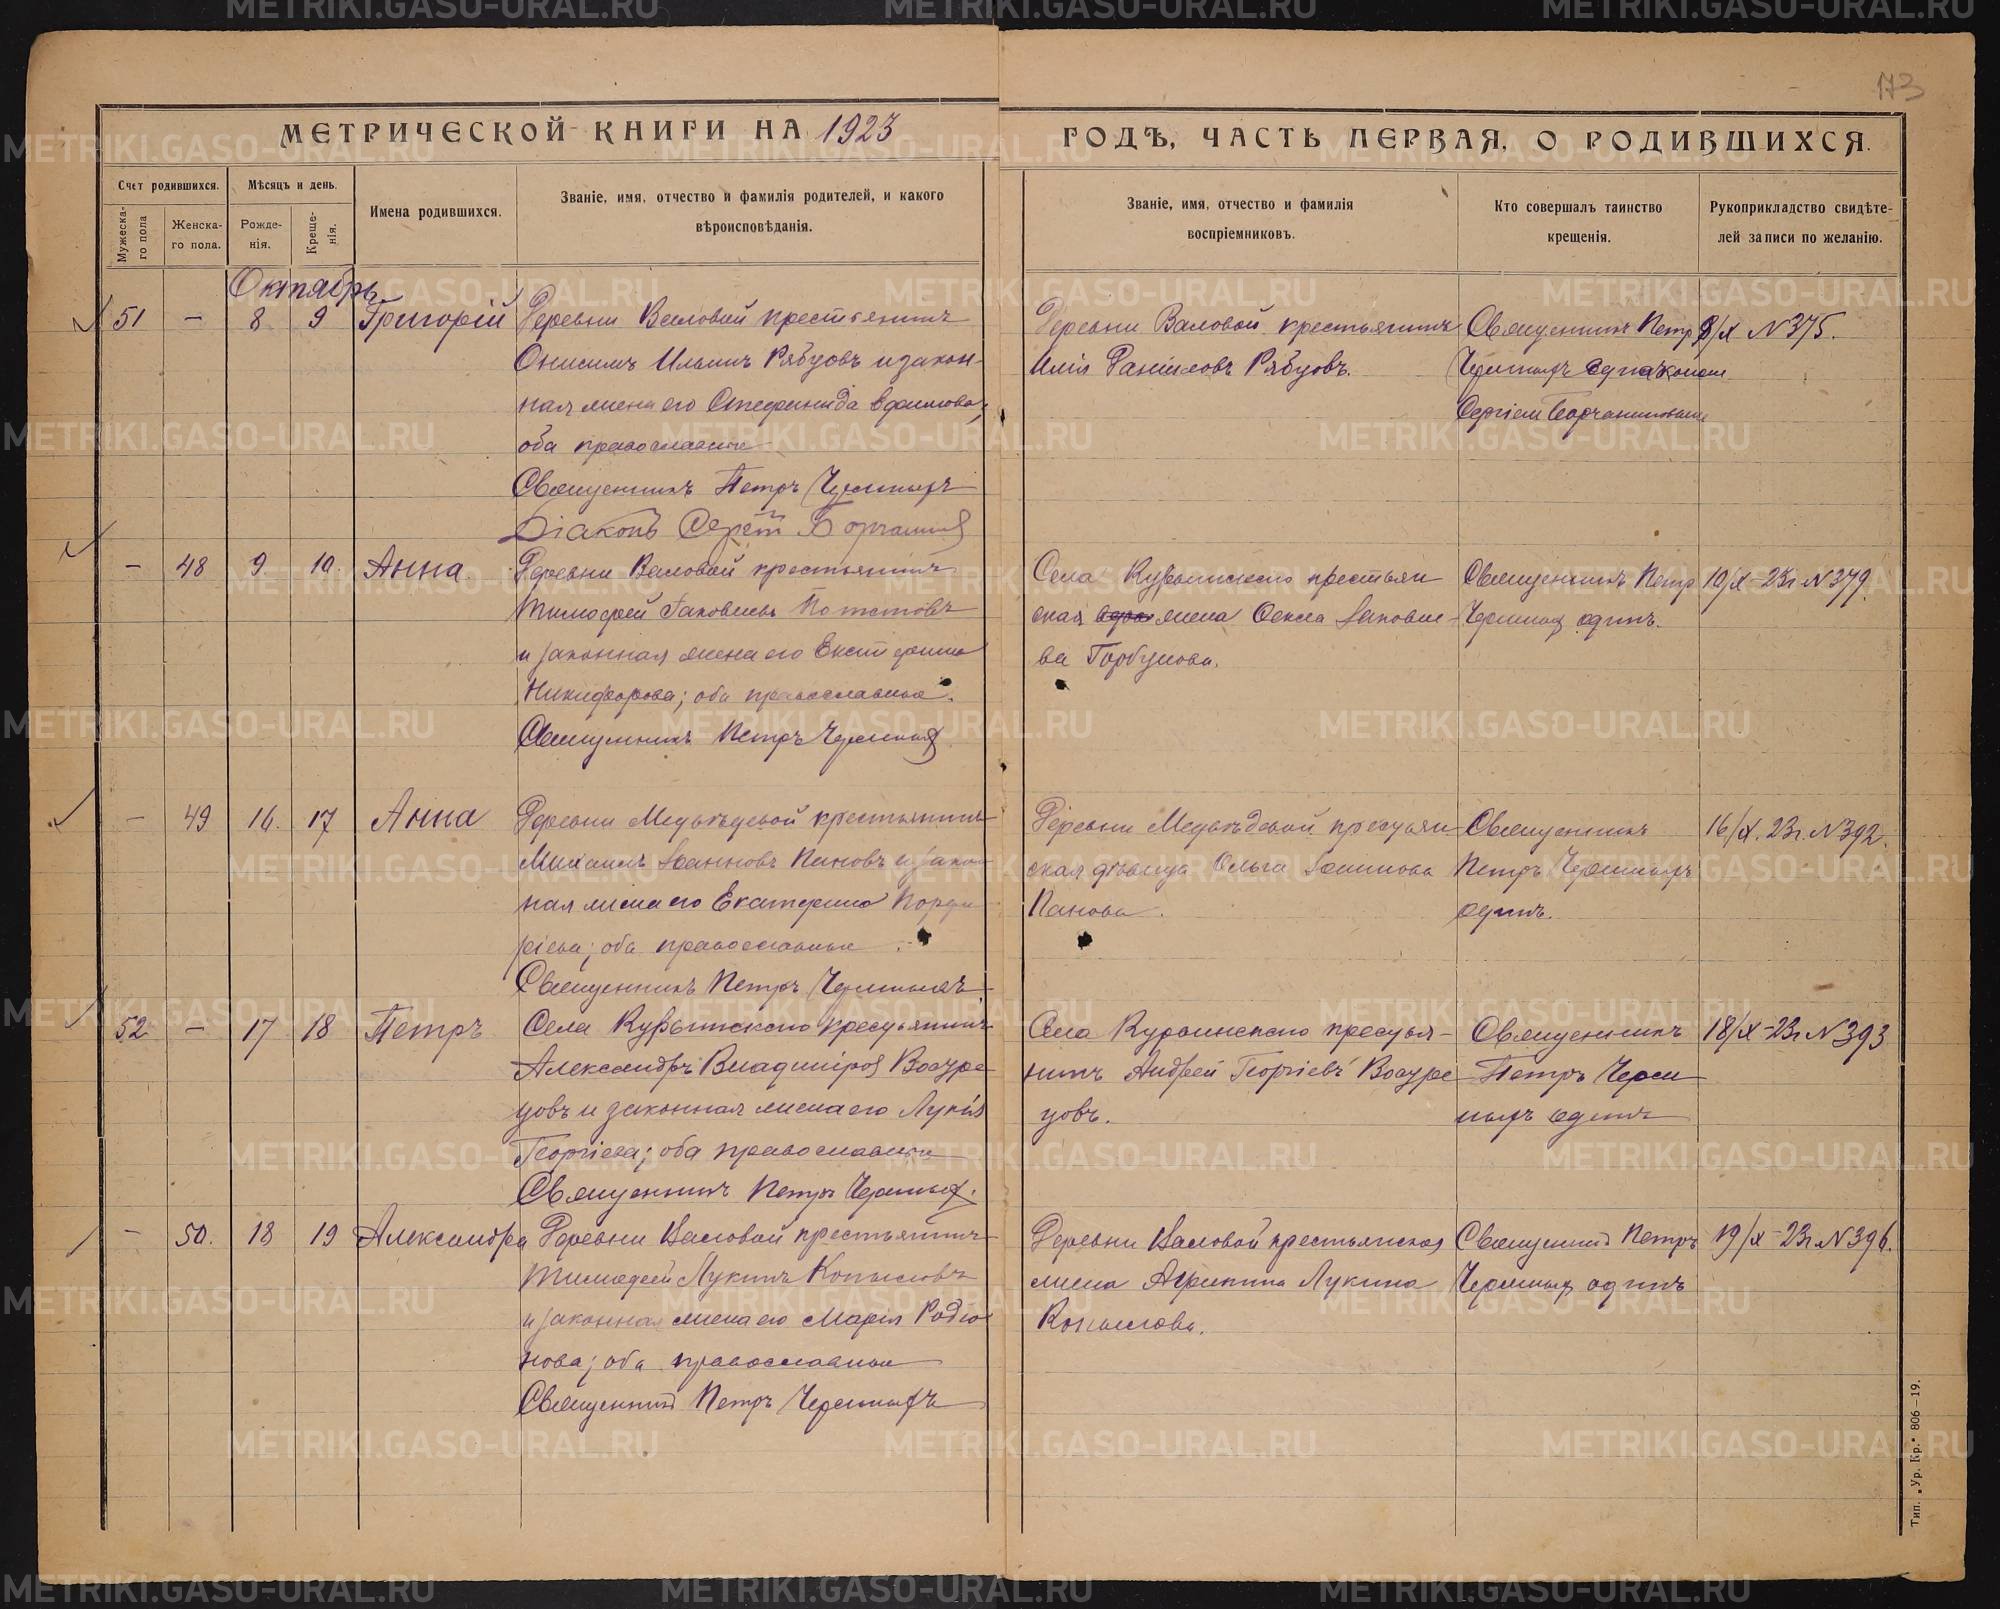 173
МЕТРИЧЕСКОЙ КНИГИ НА 1923
ГОДЪ, ЧАСТЬ ПЕРВАЯ, О РОДИВШИХСЯ.
Счет родившихся.
Мужеска-го пола
Женска-го пола.
Мѣсяцъ и день.
Рожде-нія.
Креще-нія.
Имена родившихся.
Званіе, имя, отчество и фамилія родителей, и какого
вѣроисповѣданія.
Званіе, имя, отчество и фамилія
воспріемниковъ.
Кто совершалъ таинство
крещенія.
Рукоприкладство свидѣте-
лей записи по желанію.
Октябрь
51 — 8 9 Григорій
Деревни Валовой крестьянинъ
Онисимъ Ильинъ Рябцовъ и закон-
ная жена его Стефанида
оба православные
Священникъ Петръ Черемныхъ
Діаконъ Сергій
Деревни Валовой крестьянинъ
Илія Даніиловъ Рябцовъ.
Священникъ Петр
Черемныхъ съ діакономъ
Сергіем
8/X №375.
— 48 9 10. Анна
Деревни Валовой крестьянинъ
Тимофей Іаковлевъ
и законная жена его Екатерина
Никифорова; оба православные.
Священникъ Петръ Черемныхъ
Села крестьян
ская жена Іаковле-
ва Горбунова.
Священникъ Петр
Черемных одинъ.
10/X-23г №379.
— 49 16. 17 Анна
Деревни Медвѣдевой крестьянинъ
Михаилъ Іоанновъ Пановъ и закон
ная жена его Екатерина Порфи
ріева; оба православные.
Священникъ Петръ Черемныхъ
Деревни Медвѣдевой крестьян
ская дѣвица Ольга Іоаннова
Панова.
Священникъ
Петръ Черемныхъ
одинъ.
16/X.23г.№392.
52 — 17 18 Петръ
Села крестьянинъ
Александръ Владиміров
и законная жена его Лукія
Георгіева; оба православные
Священникъ Петръ Черемных.
Села крестья-
нинъ Андрей Георгіевъ
цовъ.
Священникъ
Петръ Черем
ныхъ один
18/X-23г №393
— 50. 18 19 Александра
Деревни Валовой крестьянинъ
Тимофей Лукинъ Копыловъ
и законная жена его Марія Родіо
нова; оба православные
Священник Петръ Черемныхъ
Деревни Валовой крестьянская
жена Агрипина Лукина
Копылова.
Священник Петръ
Черемных одинъ
19/X-23г №396.
Тип. „Ур. Кр.“ 806—19.
METRIKI.GASO-URAL.RU